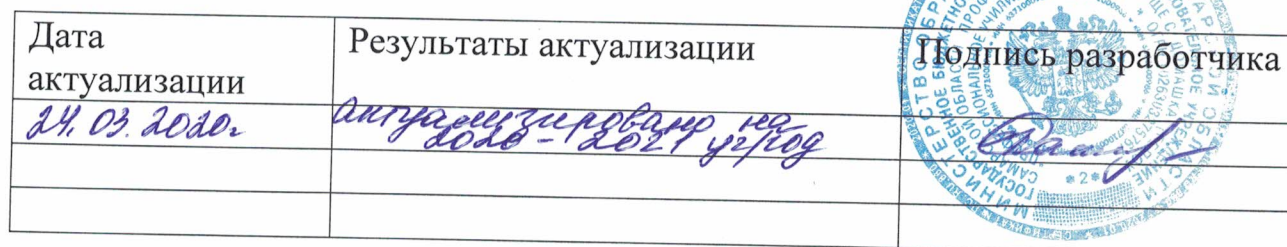 Дата актуализации
Результаты актуализации
Подпись разработчика
24.03.2020г
актуализировано на
2020 – 2021 уч/год